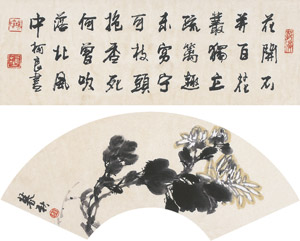 花開不
并百花
叢獨立
疏籬趣
未窮寧
可枝頭
抱香死
何曾吹
落北風
中柯良書